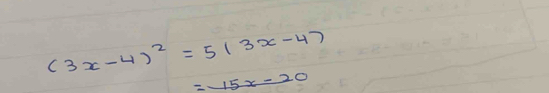 (3x-4)² = 5(3x-4)
= 15x-20